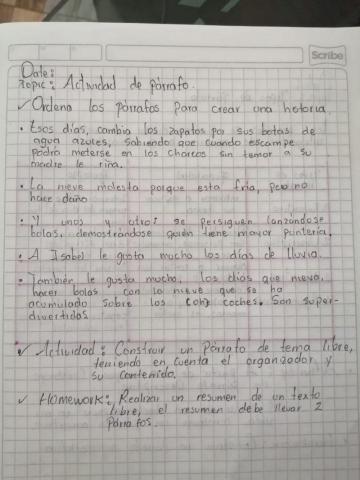 Scribe
Date:
Topic: Actividad de párrafo.
✓ Ordena los párrafos para crear una historia
• Esos días, cambia los zapatos por sus botas de
agua azules, sabiendo que cuando escampe
podrá meterse en los charcos sin temor a su
madre le riña.
• La nieve molesta porque esta fría, pero no
hace daño
• Y unos y otros se persiguen lanzándose
bolas, demostrándose quién tiene mayor puntería.
• A Isabel le gusta mucho los días de lluvia.
• También le gusta mucho, los días que nieva,
hacer bolas con la nieve que se ha
acumulado sobre los coches. Son super-
divertidas
✓ Actividad: Construir un párrafo de tema libre,
teniendo en cuenta el organizador y
su contenido.
✓ Homework: Realizar un resumen de un texto
libre, el resumen debe llevar 2
párrafos.